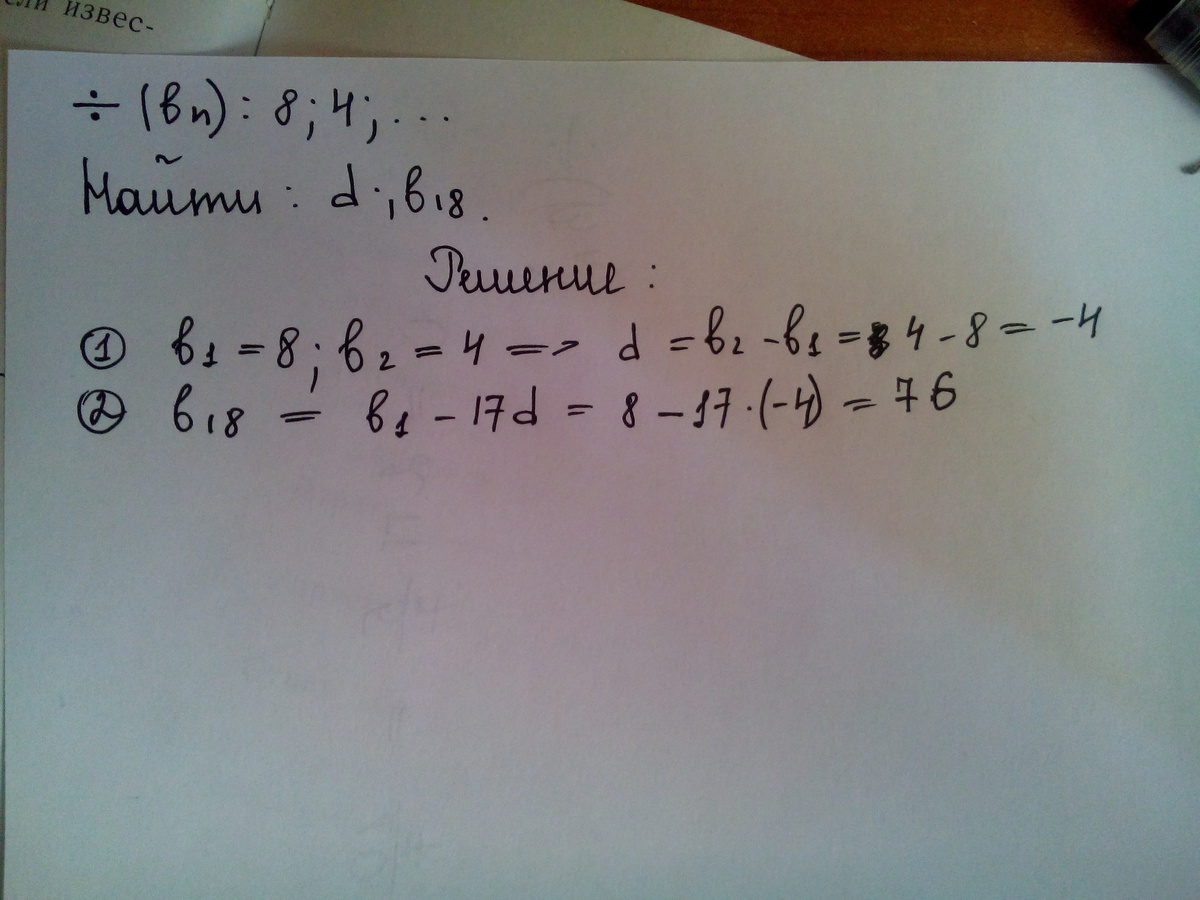 извес-
÷ (вn): 8; 4; ...
Найти: d; в18.
Решение:
① в1 = 8; в2 = 4 => d = в2 - в1 = 4 - 8 = -4
② в18 = в1 - 17d = 8 - 17·(-4) = 76